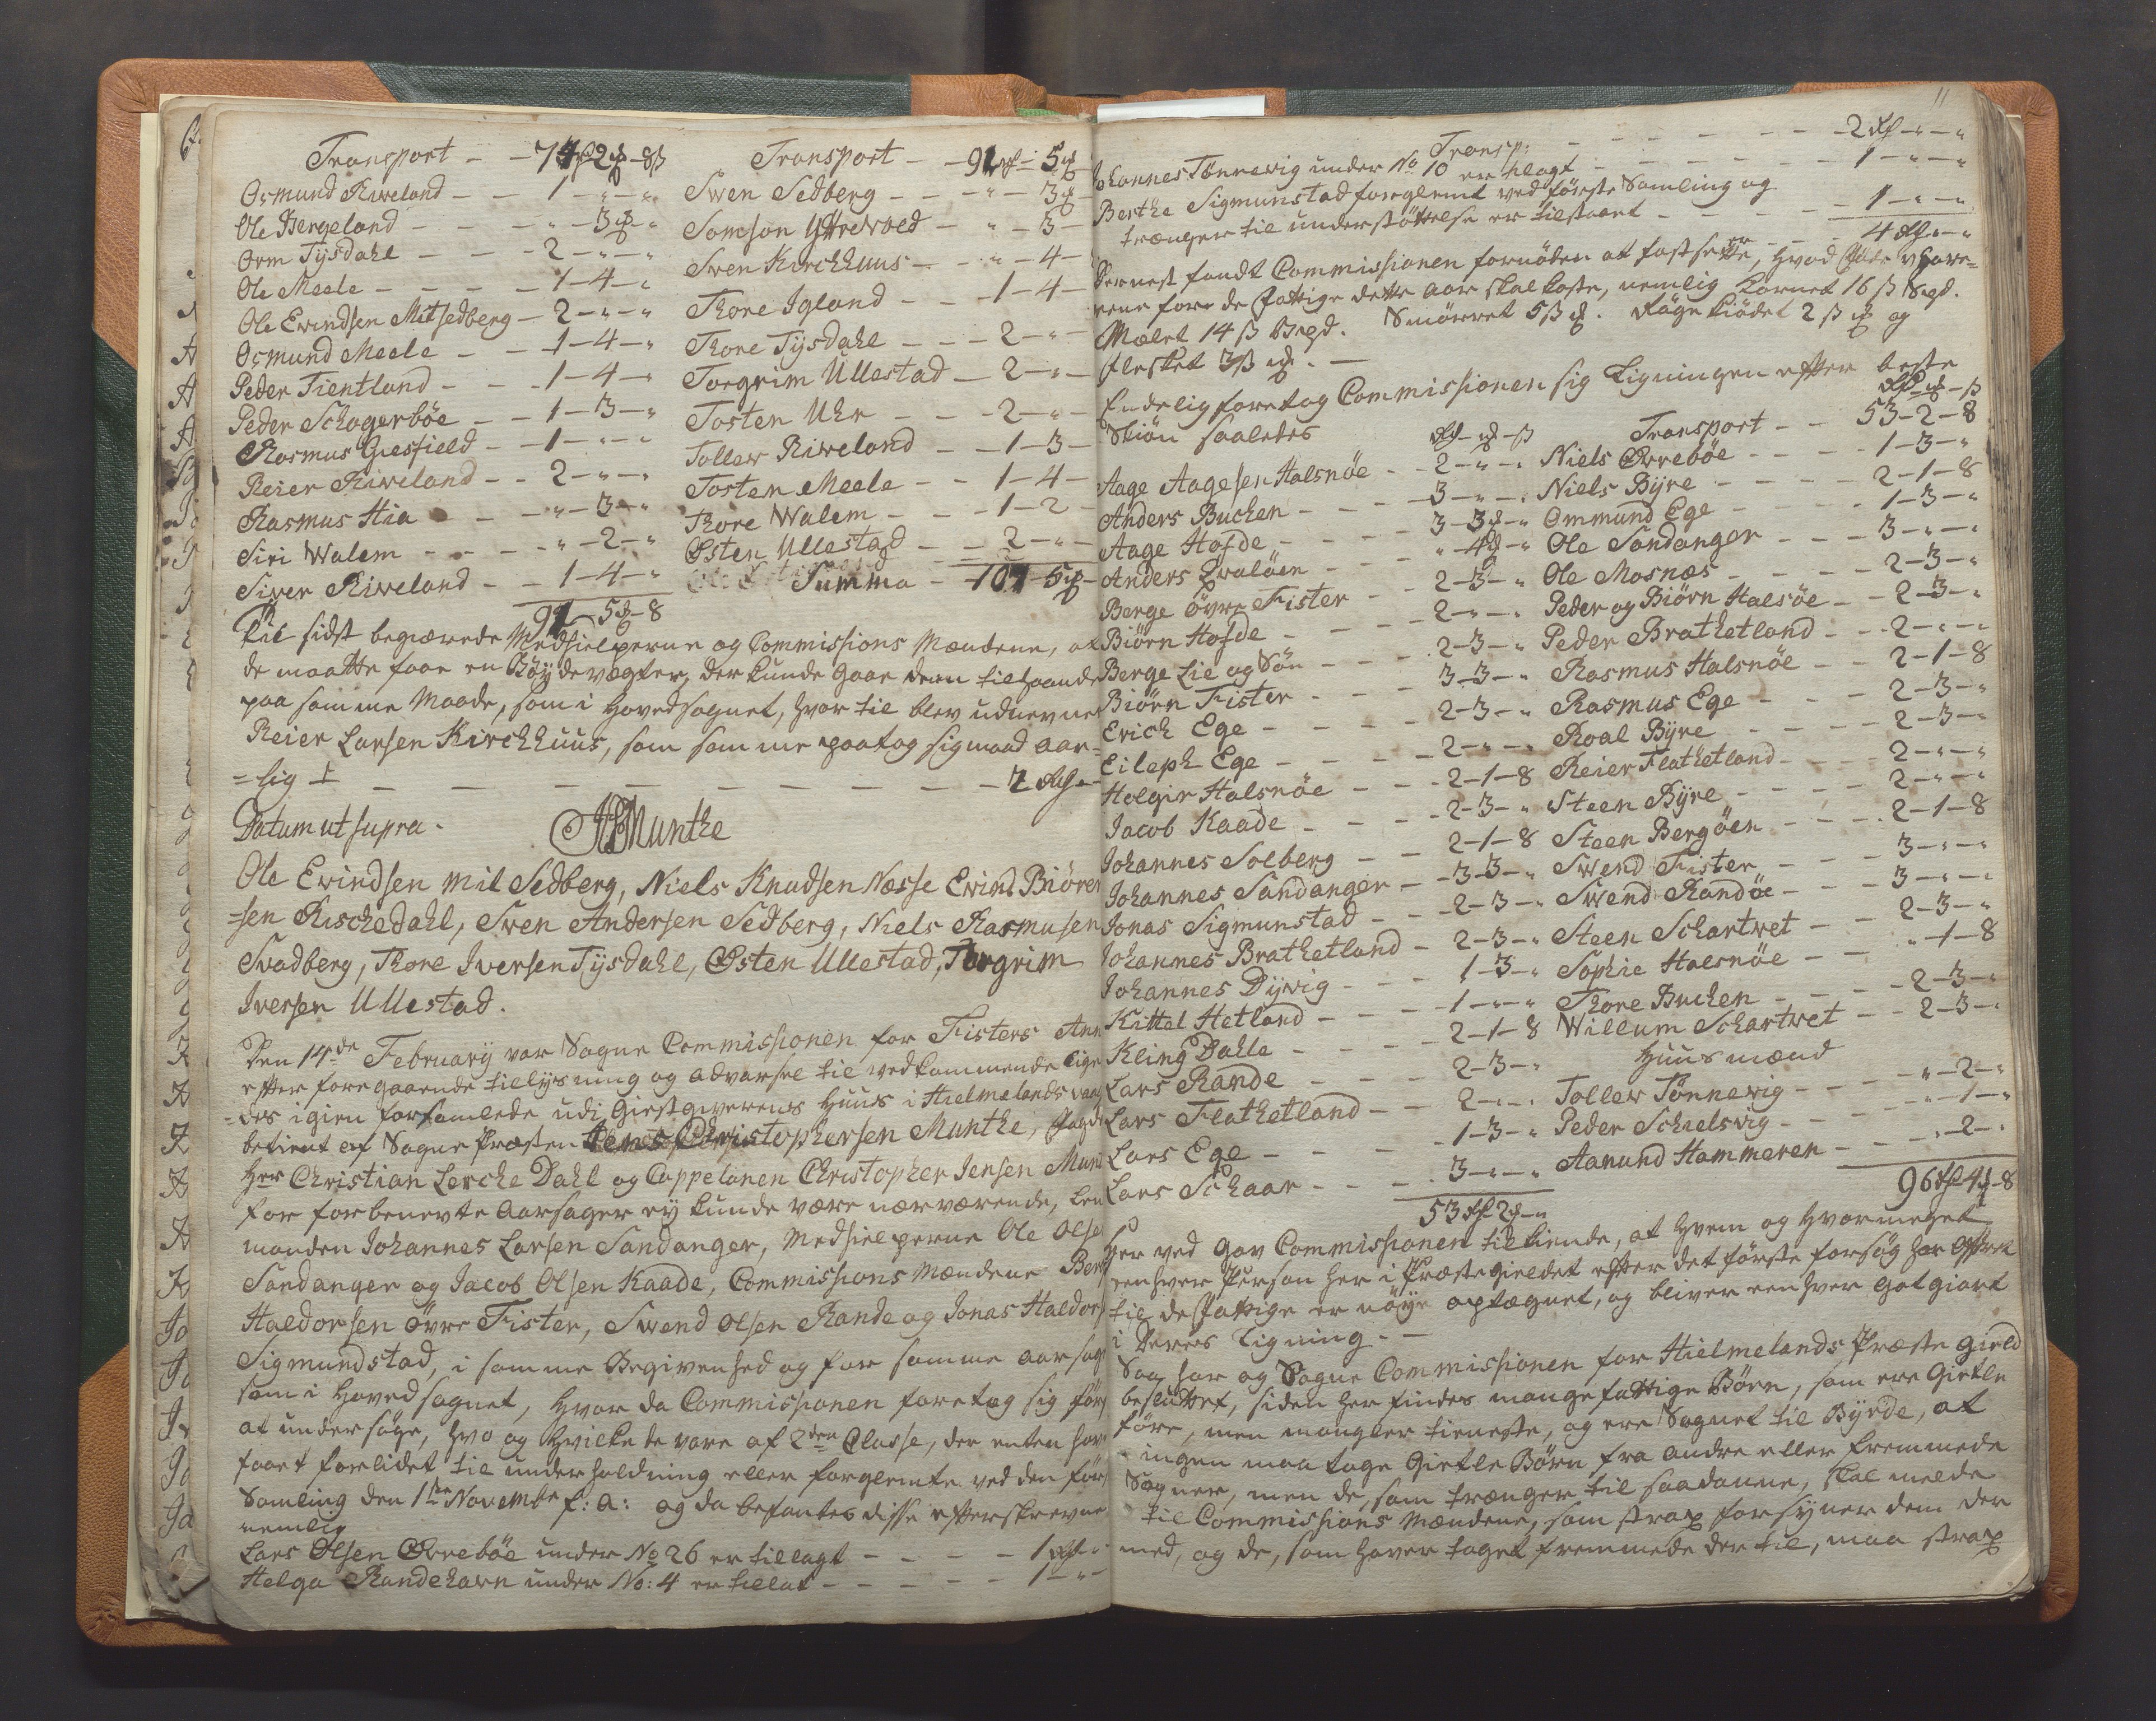 Transport - - 74 rd 2 # - 8 ß
Osmund Riweland - - 1 - " - "
Ole Bergeland - - - " - 3 # - "
Orm Tysdahl - - - 2 - " - "
Ole Meele - - - - 1 - 4 - "
Ole Evindsen Mitsedberg - 2 - " - "
Osmund Meele - - - 1 - 4 - "
Peder Tientland - - - 1 - 4 - "
Peder Schagerbøe - - 1 - 3 - "
Rasmus Giesfield - - 1 - " - "
Reier Riweland - - 2 - " - "
Rasmus Hia - - - " - 3 - "
Siri Walem - - - - " - 2 - "
Siver Riweland - - 1 - 4 - "
91 - 5 # - 8
Transport - - 91 rd - 5 #
Swen Sedberg - - - " - 3 #
Samson Yttrevoed - " - 3 -
Sven Kirckhuus - - " - 4 -
Thore Igland - - - 1 - 4 -
Thore Tysdahl - - - 2 - " -
Torgrim Ullestad - 2 - " -
Tosten Uhr - - - 2 - " -
Tollew Riweland - - 1 - 3 -
Tosten Meele - - 1 - 4 -
Thore Walem - - - 1 - 2 -
Østen Ullestad - - 2 - " -
Summa - 107 - 5 # -
Til sidst begiærede Medhielperne og Commissions Mændene, at
de maatte faae en Bøydevægter, der kunde gaae dem til haande
paa samme Maade, som i Hovedsognet, hvor til blev udnevnet
Reier Larsen Kirckhuus, som samme paatog sig imod aar-
=lig - - - - - - - - - - 2 Rd " -
Datum ut supra.
Munthe
Ole Evindsen mit Sedberg, Niels Knudsen Næsse Evind Biøren
=sen Rischedahl, Sven Andersen Sedberg, Niels Rasmusen
Svadberg, Thore Iversen Tysdahl, Østen Ullestad, Torgrim
Iversen Ullestad.
Den 14de February var Sogne Commissionen for Fisters Ann
efter foregaaende tillysning og advarsel til vedkommende lige
=des igien forsamlede udi Giestgiverens Huus i Hielmelands vaag
betient af Sogne Præsten Jens Christophersen Munthe, Fogden
Her Christian Lerche Dahl og Cappelanen Christopher Jensen Munt
for forbenevte Aarsager ey kunde være nærværende, Len
manden Johannes Larsen Sandanger, Medhielperne Ole Olse
Sandanger og Jacob Olsen Kaade, Commissions Mændene Berg
Haldorsen øvre Fister, Swend Olsen Rande og Jonas Haldors
Sigmundstad, i samme Begivenhed og for samme aarsag
som i Hovedsognet, hvor da Commissionen foretog sig før
at undersøge, hvo og hvilke de vare af 2den Classe, der enten hav
faaet for lidet til underholdning eller forglemte ved den før
Samling den 1te Novembr f: a: og da befantes disse efterskrevne
nemlig
Lars Olsen Ovrebøe under No 26 er tillagt - - - - 1 Rd "
Helga Randehavn under No: 4 er tillat - - - - - 1 - " -
11
Transp: - - - - - - - 2 Rd - " - "
Johannes Tønnewig under No 10 er tilagt - - - - - 1 - " - "
Berthe Sigmunstad forglemt ved første Samling og
trænger til understøttelse er tilstaaet - - - - - 1 - " - "
4 Rd - " - "
Dernest fandt Commissionen fornøden at fastsette, hvad
rene for de Fattige dette Aar skal koste, nemlig Kornet 16 ß Vegd.
Malet 14 ß Vegd. Smørret 5 ß #. Faare kiødet 2 ß # og
Flesket 3 ß #. -
Endelig foretog Commissionen sig Ligningen efter beste
Skiøn saaledes
Rd - # - ß
Aage Aagesen Halsnøe - - 2 - " - "
Anders Buchen - - - 3 - " - "
Aage Hofde - - - - 3 - 3 # - "
Anders Qvaløen - - - " - 4 # - "
Berge øvre Fister - - 2 - 3 - "
Biørn Hofde - - - - 2 - " - "
Berge Lie og Søn - - - 2 - 3 - "
Biørn Fister - - - - 3 - 3 - "
Erich Ege - - - - - 2 - 3 - "
Eileph Ege - - - - - 2 - " - "
Helgir Halsnøe - - - 2 - 1 - 8
Jacob Kaade - - - - 2 - 3 - "
Johannes Solberg - - - 2 - 1 - 8
Johannes Sandanger - - 3 - 3 - "
Jonas Sigmunstad - - - 2 - 3 - "
Johannes Brathetland - 2 - 3 - "
Johannes Dyvig - - - 1 - 3 - "
Kittel Hetland - - - - 1 - " - "
Kling Dalle - - - - 2 - 1 - 8
Lars Rande - - - - 2 - 3 - "
Lars Flathetland - - - 2 - " - "
Lars Ege - - - - - 1 - 3 - "
Lars Schaar - - - - 3 - " - "
53 Rd 2 # - "
Rd - # - ß
Transport - - 53 - 2 - 8
Niels Ovrebøe - - - - 1 - 3 - "
Niels Byre - - - - 2 - 1 - 8
Ommund Ege - - - - 1 - 3 - "
Ole Sandanger - - - 3 - " - "
Ole Mosnæs - - - - 2 - 3 - "
Peder og Biørn Halsøe - - 2 - 3 - "
Peder Brathetland - - 2 - " - "
Rasmus Halsnøe - - 2 - 1 - 8
Rasmus Ege - - - 2 - 3 - "
Roal Byre - - - - 2 - 3 - "
Reier Flathetland - - - 2 - " - "
Steen Byre - - - - 2 - " - "
Steen Bergøen - - - - 2 - 1 - 8
Swend Fister - - - 3 - " - "
Swend Randøe - - - 3 - " - "
Steen Schartvet - - 2 - 3 - "
Sophie Halsnøe - - " - 1 - 8
Thore Buchen - - - - 2 - 3 - "
Willum Schartvet - - 2 - 3 - "
Huusmænd
Tollew Tønnewig - - - " - 2 - "
Peder Schielsvig - - - " - 1 - "
Aanund Hammeren - - - " - 2 - "
96 Rd 4 # - 8
Her ved gav Commissionen tilkiende, at hvem og hvormeget
eenhver Person her i Præstegieldet efter det første forsøg har offret
til de Fattige er nøye optægnet, og bliver eenhver gotgiort
i deres Ligning. -
Saa har og Sogne Commissionen for Hielmelands Præste gield
besluttet, siden her findes mange fattige Børn, som ere Gietle
føre, men mangler tieneste, og ere Sognet til Byrde, at
ingen maa tage Gietle Børn fra andre eller fremmede
Sogner, men de, som trænger til saadanne, skal melde
til Commissions Mændene, som strax forsyner dem der
med, og de, som haver taget fremmede der til, maa strax